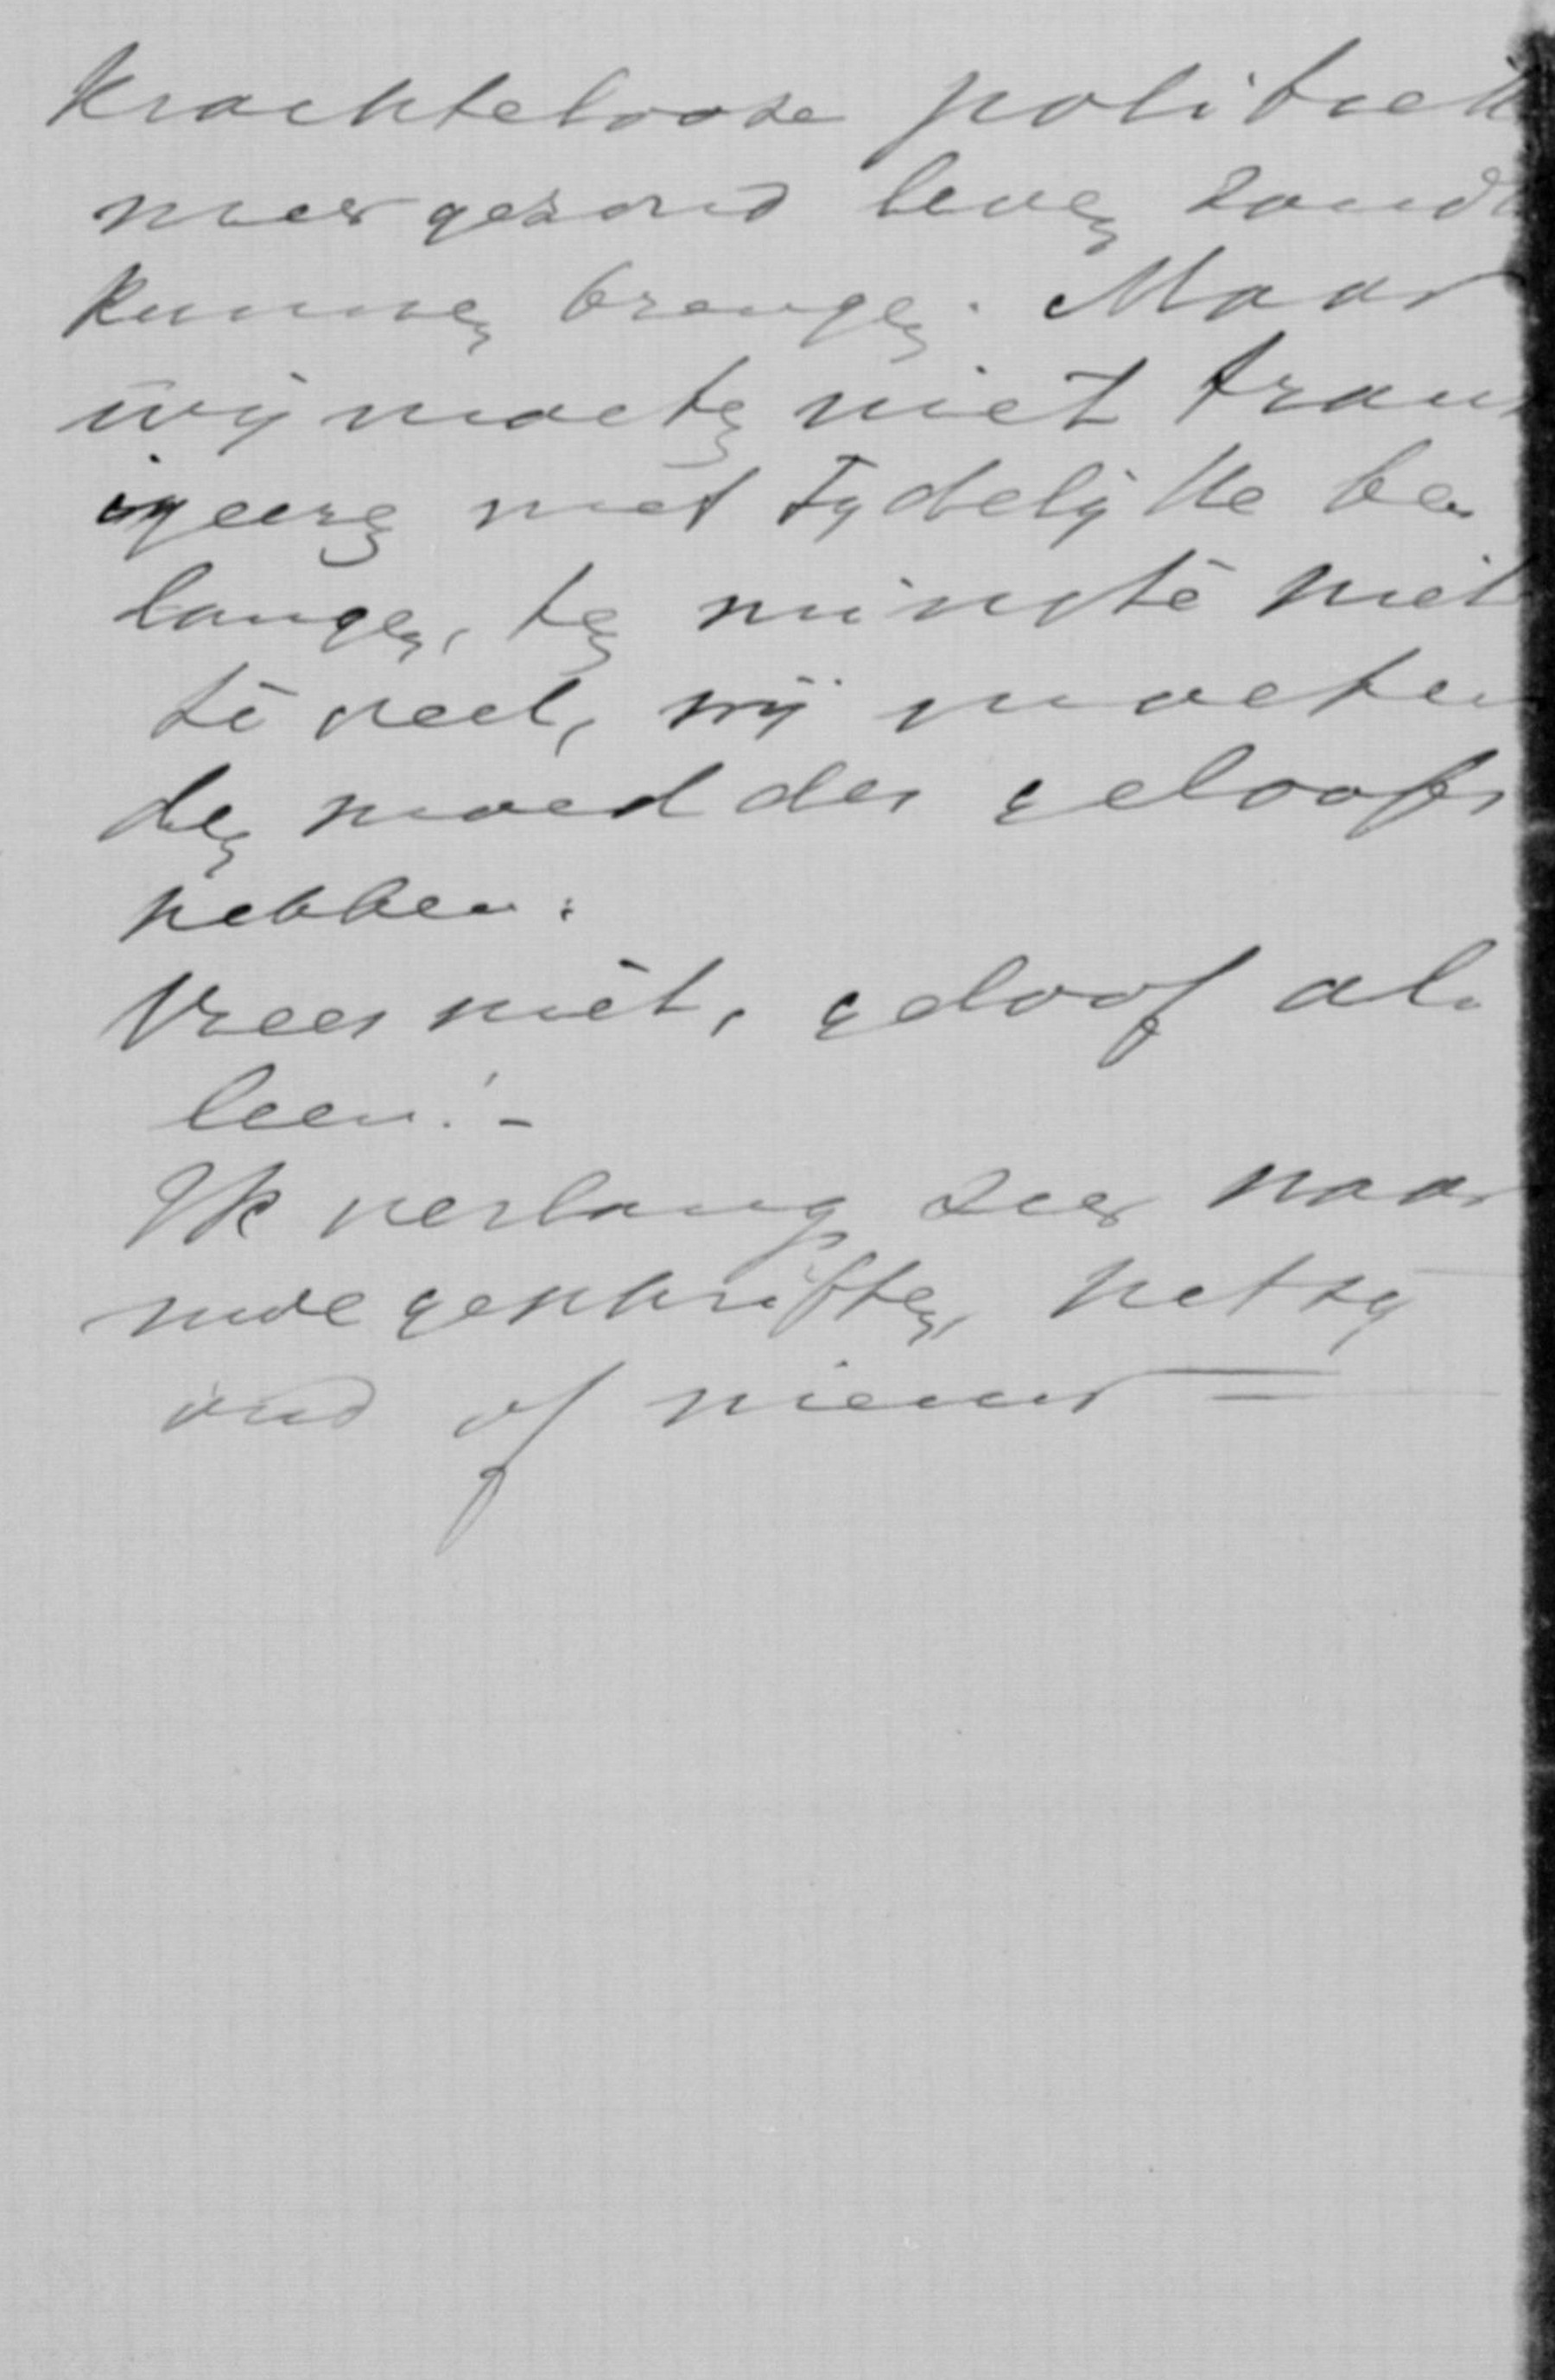 krachtelooze politiek
meer gezond leven zoude
kunnen brengen. Maar
wij moeten niet trans
igeeren met tydelijke be
langen, ten minste niet
te veel, wij moeten
den moed des geloofs
hebben:
Vrees niet, geloof al
leen! -
Ik verlang zeer naar
uwe geschriften, het zy
oud of nieuw =